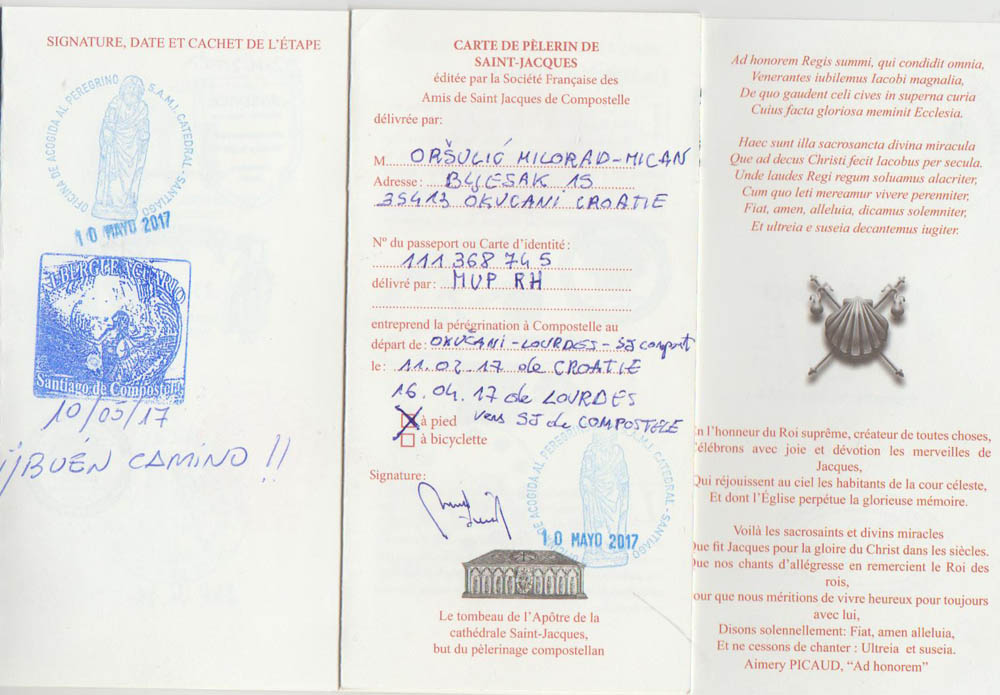 SIGNATURE, DATE ET CACHET DE L'ÉTAPE
OFICINA DE ACOGIDA AL PEREGRINO S.A.M.I. CATEDRAL - SANTIAGO
10 MAYO 2017
Santiago de Compostela
10/05/17
¡¡BUÉN CAMINO !!
CARTE DE PÈLERIN DE
SAINT-JACQUES
éditée par la Société Française des
Amis de Saint Jacques de Compostelle
délivrée par:
M. ORŠULIĆ MILORAD-MIĆAN
Adresse: BLJESAK 15
35413 OKUČANI CROATIE
N° du passeport ou Carte d'identité:
111 368 745
délivré par: MUP RH
entreprend la pérégrination à Compostelle au
départ de: OKUČANI - LOURDES - SJ compost
le: 11.02.17 de CROATIE
16.04.17 de LOURDES
à pied vers SJ de COMPOSTELE
à bicyclette
Signature:
OFICINA DE ACOGIDA AL PEREGRINO S.A.M.I. CATEDRAL - SANTIAGO
10 MAYO 2017
Le tombeau de l'Apôtre de la
cathédrale Saint-Jacques,
but du pèlerinage compostellan
Ad honorem Regis summi, qui condidit omnia,
Venerantes iubilemus Iacobi magnalia,
De quo gaudent celi cives in superna curia
Cuius facta gloriosa meminit Ecclesia.
Haec sunt illa sacrosancta divina miracula
Que ad decus Christi fecit Iacobus per secula.
Unde laudes Regi regum soluamus alacriter,
Cum quo leti mereamur vivere perenniter,
Fiat, amen, alleluia, dicamus solemniter,
Et ultreia e suseia decantemus iugiter.
En l'honneur du Roi suprême, créateur de toutes choses,
Célébrons avec joie et dévotion les merveilles de
Jacques,
Qui réjouissent au ciel les habitants de la cour céleste,
Et dont l'Église perpétue la glorieuse mémoire.
Voilà les sacrosaints et divins miracles
Que fit Jacques pour la gloire du Christ dans les siècles.
Que nos chants d'allégresse en remercient le Roi des
rois,
Pour que nous méritions de vivre heureux pour toujours
avec lui,
Disons solennellement: Fiat, amen alleluia,
Et ne cessons de chanter : Ultreia et suseia.
Aimery PICAUD, "Ad honorem"